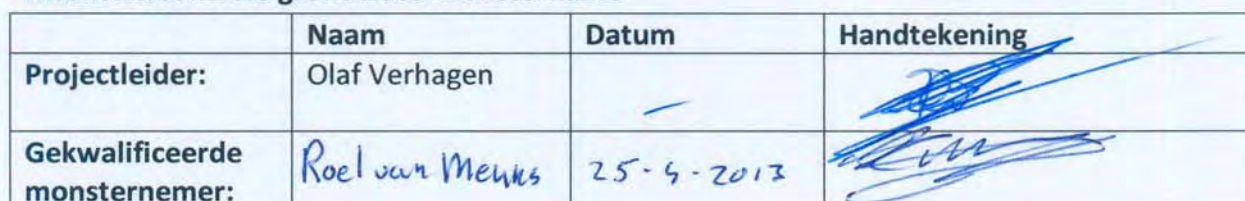 Naam Datum Handtekening
Projectleider: Olaf Verhagen –
Gekwalificeerde
monsternemer: Roel van 25-4-2013